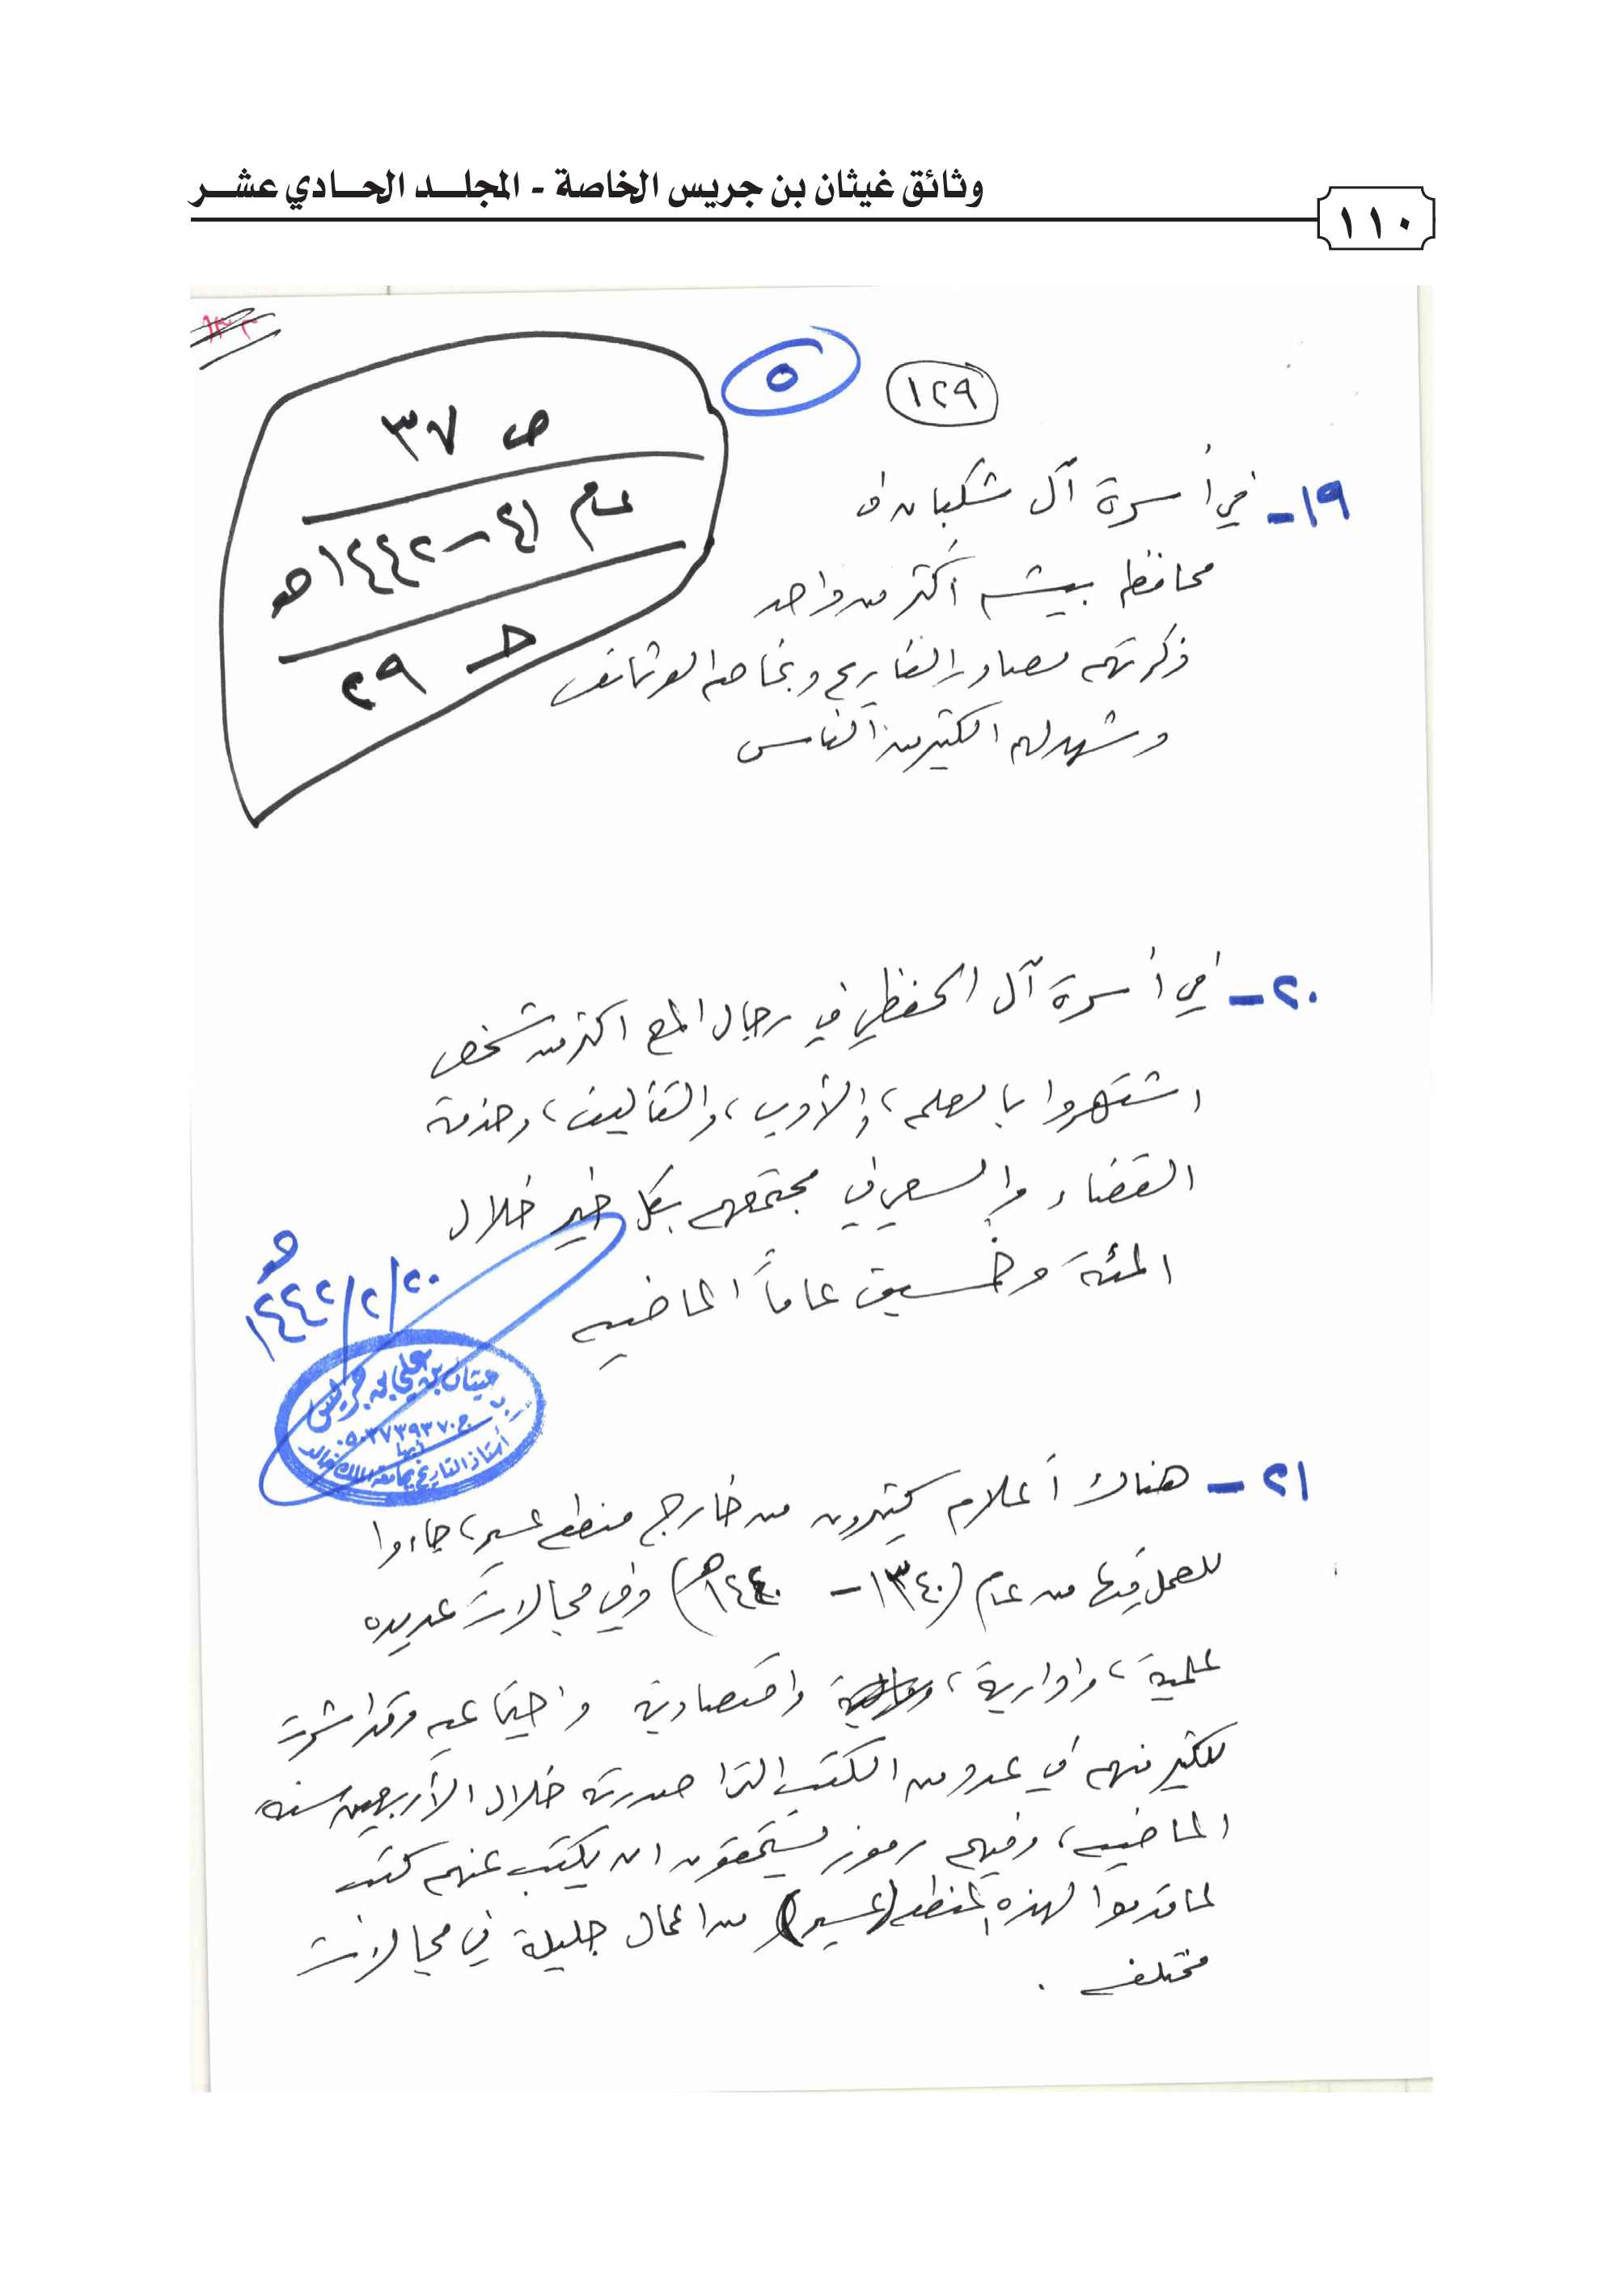 وثائق غيثان بن جريس الخاصة - المجلد الحادي عشر
١١٠
١٢٩
٥
ص ٣٧
عام ٤١ - ١٤٤٢هـ
حـ ٢٩
١٩- في أسرة آل شكبان في
محافظة بيشة أكثر من واحد
ذكرتهم مصادر التاريخ وبخاصة الوثائق
وشهد لهم الكثير من الناس
٢٠- في أسرة آل الحفظي في رجال المع اكثر من شخص
اشتهروا بالعلم، والأدب، والتأليف، وخدمة
القضاء والسعي في مجتمعهم بكل خير خلال
المئة وخمسين عاماً الماضية
١٤٤٢/٢/٢٠هـ
د. غيثان بن علي بن جريس
ج ٠٥٠٣٧٣٩٣٧٠
أبها
أستاذ التاريخ بجامعة الملك خالد
٢١- هناك أعلام كثيرون من خارج منطقة عسير، جاءوا
للعمل فيها من عام (١٣٤٠ - ١٤٤٠هـ) وفي مجالات عديدة
علمية، وادارية، واقتصادية واجتماعية وقد اشرت
للكثير منهم في عدد من الكتب التي صدرت خلال الأربعين سنة
الماضية، وفيهم رموز يستحقون ان يكتب عنهم كتب
لما قدموا لهذه المنطقة (عسير) من اعمال جليلة في مجالات
مختلفة .